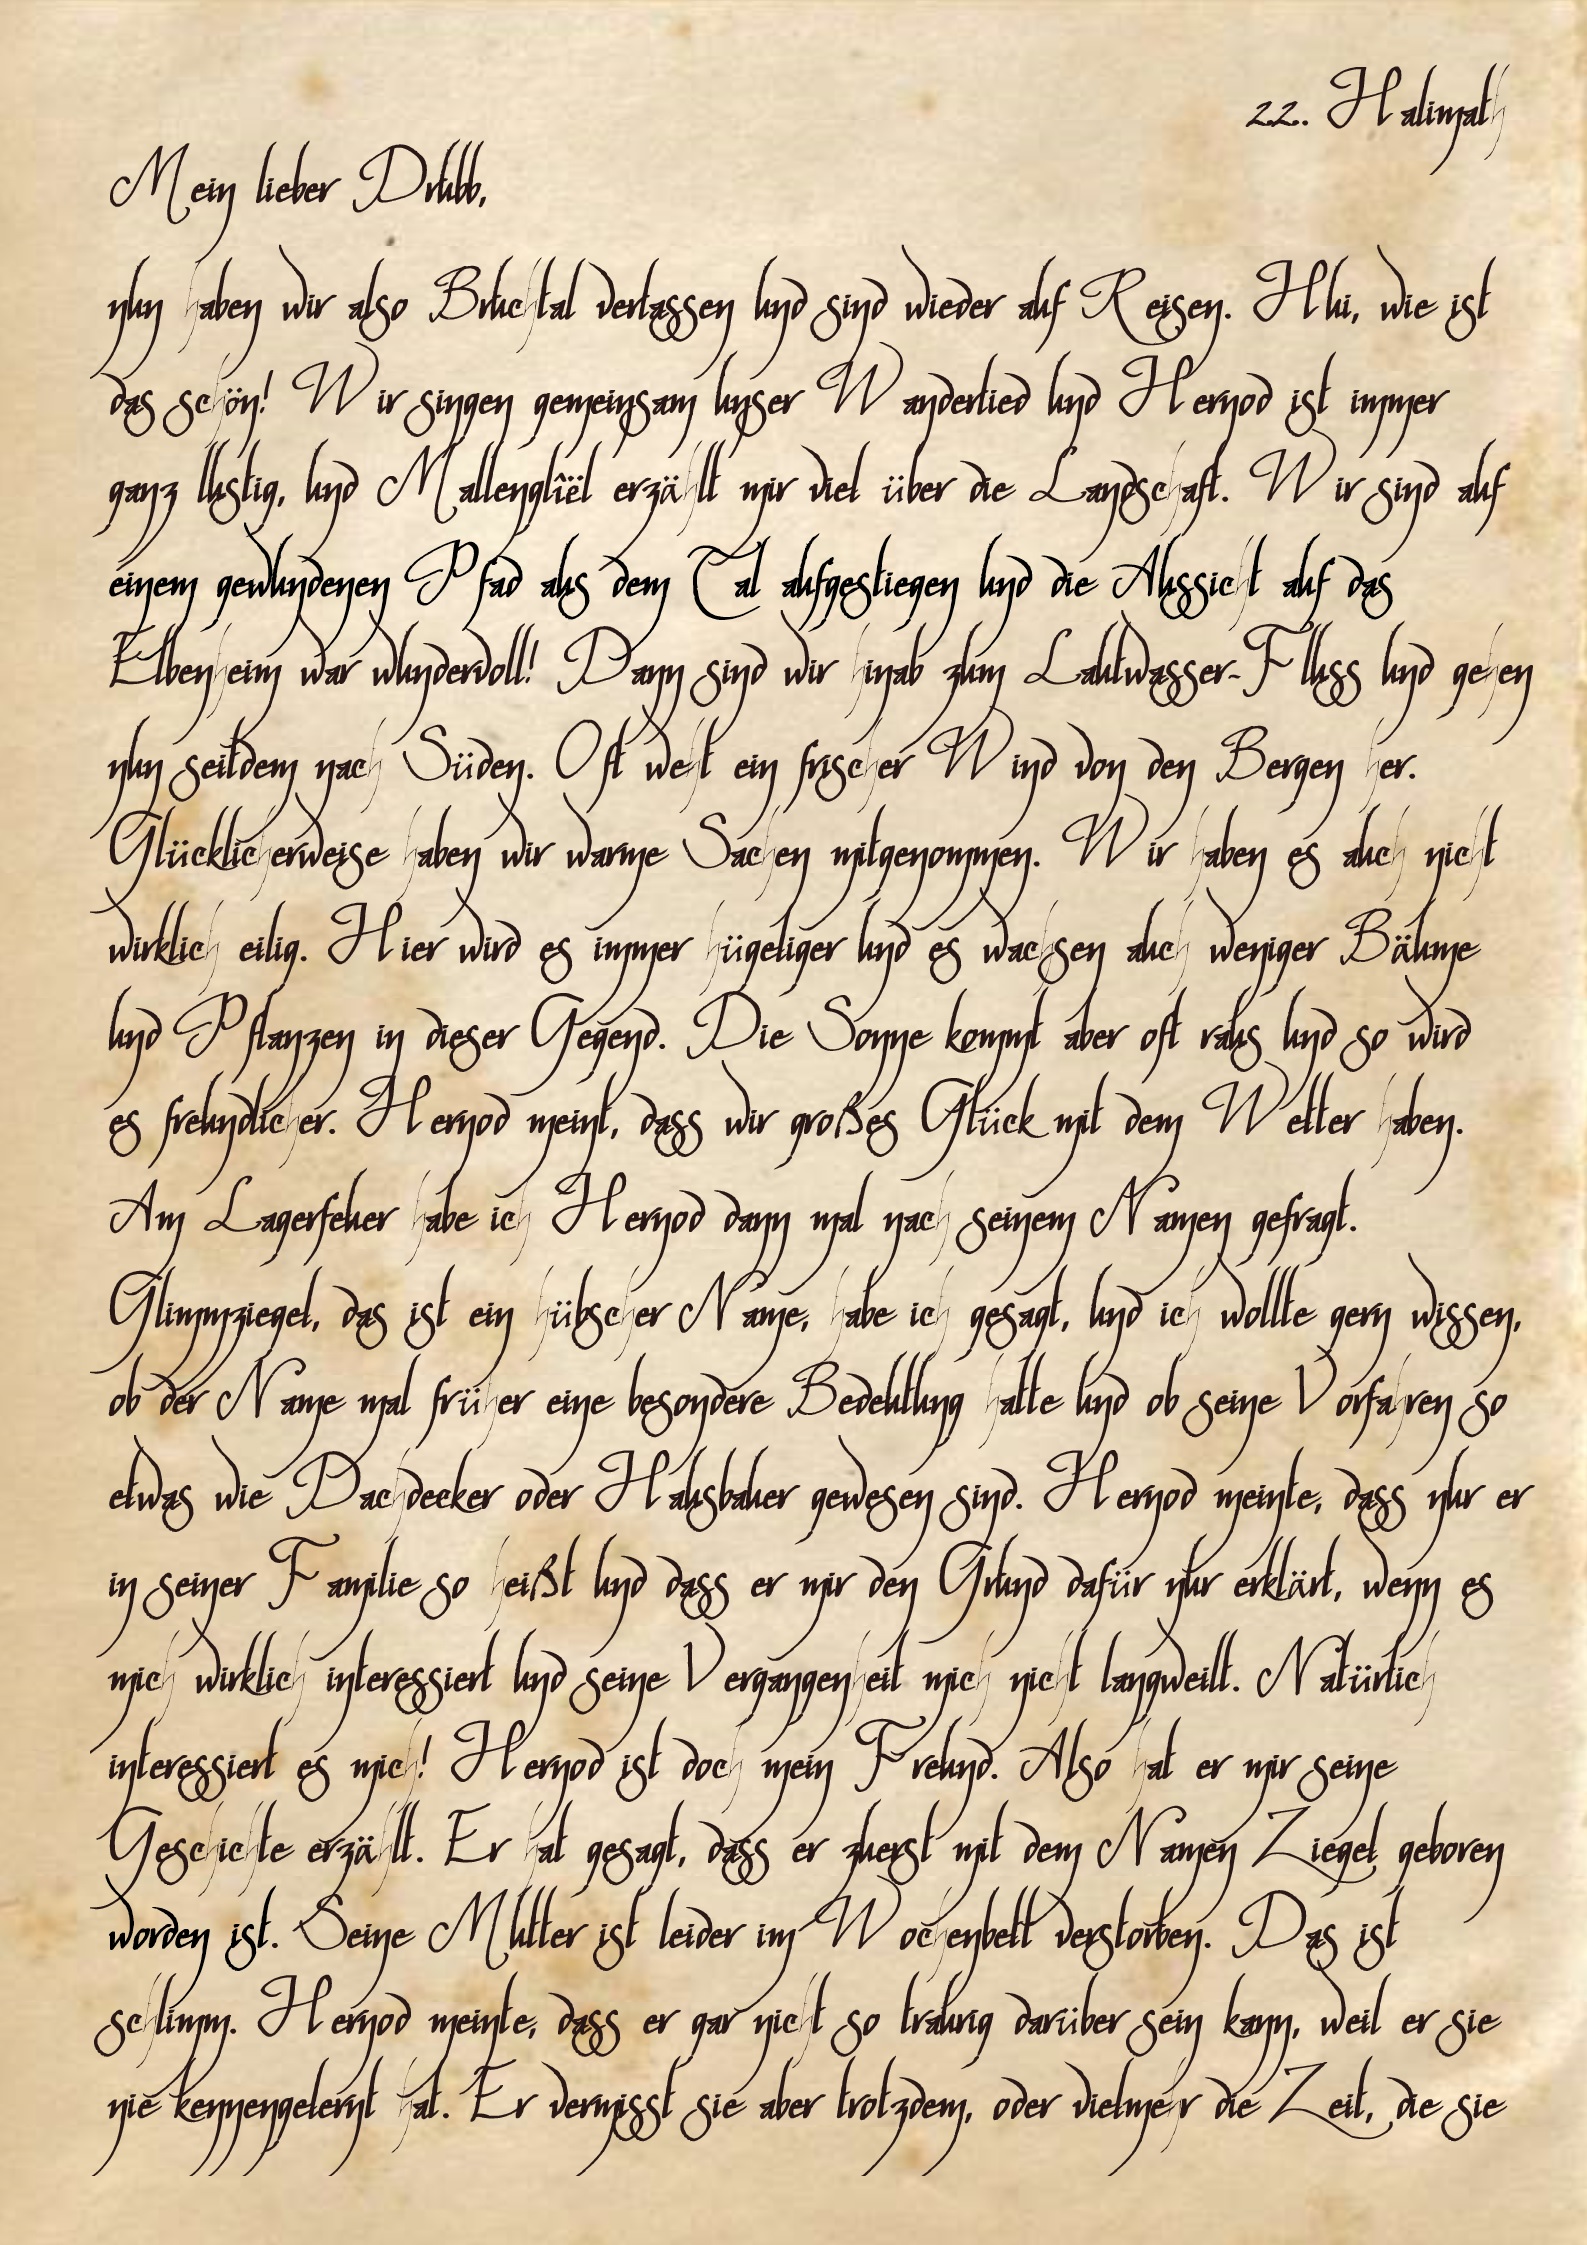 22. Halimath
Mein lieber Drubb,
nun haben wir also Bruchtal verlassen und sind wieder auf Reisen. Hui, wie ist
das schön! Wir singen gemeinsam unser Wanderlied und Hernod ist immer
ganz lustig, und Mallenglîël erzählt mir viel über die Landschaft. Wir sind auf
einem gewundenen Pfad aus dem Tal aufgestiegen und die Aussicht auf das
Elbenheim war wundervoll! Dann sind wir hinab zum Lautwasser-Fluss und gehen
nun seitdem nach Süden. Oft weht ein frischer Wind von den Bergen her.
Glücklicherweise haben wir warme Sachen mitgenommen. Wir haben es auch nicht
wirklich eilig. Hier wird es immer hügeliger und es wachsen auch weniger Bäume
und Pflanzen in dieser Gegend. Die Sonne kommt aber oft raus und so wird
es freundlicher. Hernod meint, dass wir großes Glück mit dem Wetter haben.
Am Lagerfeuer habe ich Hernod dann mal nach seinem Namen gefragt.
Glimmziegel, das ist ein hübscher Name, habe ich gesagt, und ich wollte gern wissen,
ob der Name mal früher eine besondere Bedeutung hatte und ob seine Vorfahren so
etwas wie Dachdecker oder Hausbauer gewesen sind. Hernod meinte, dass nur er
in seiner Familie so heißt und dass er mir den Grund dafür nur erklärt, wenn es
mich wirklich interessiert und seine Vergangenheit mich nicht langweilt. Natürlich
interessiert es mich! Hernod ist doch mein Freund. Also hat er mir seine
Geschichte erzählt. Er hat gesagt, dass er zuerst mit dem Namen Ziegel geboren
worden ist. Seine Mutter ist leider im Wochenbett verstorben. Das ist
schlimm. Hernod meinte, dass er gar nicht so traurig darüber sein kann, weil er sie
nie kennengelernt hat. Er vermisst sie aber trotzdem, oder vielmehr die Zeit, die sie